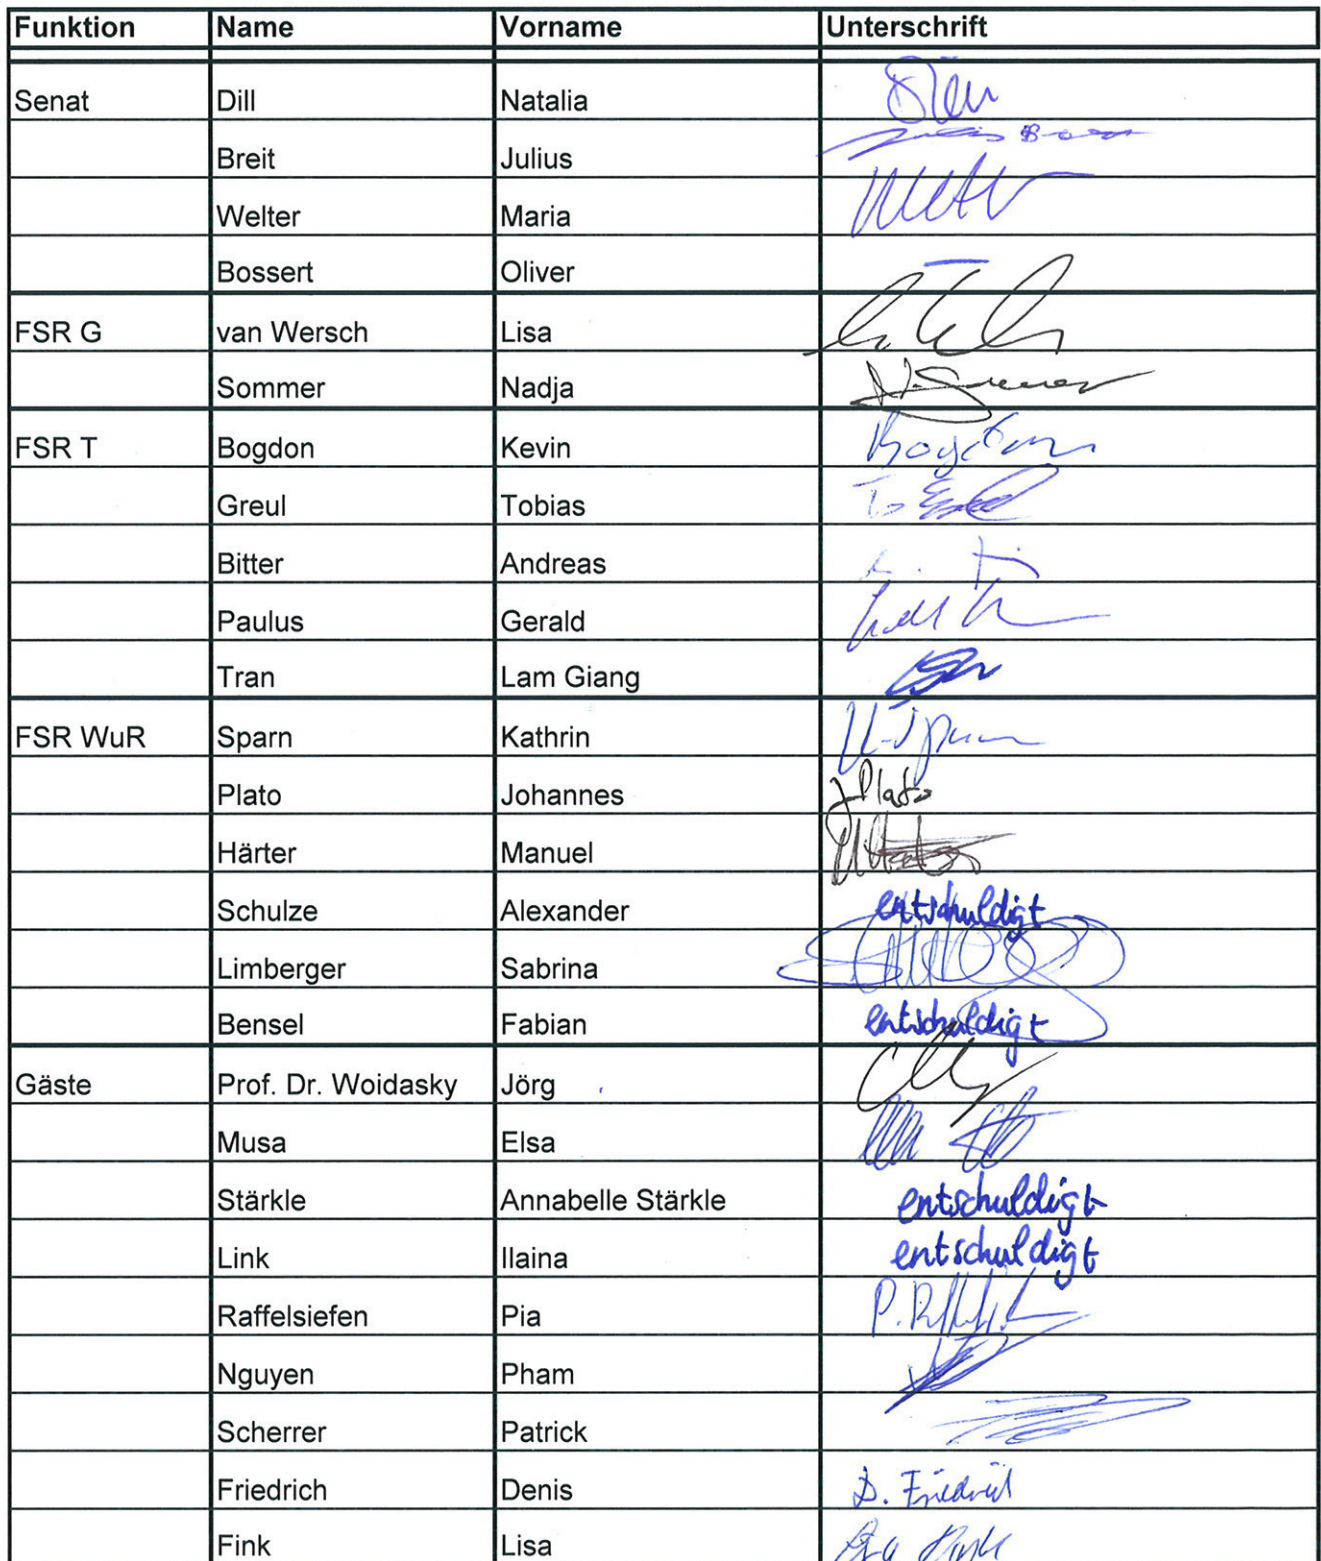 Funktion Name Vorname Unterschrift
Senat Dill Natalia
Breit Julius
Welter Maria
Bossert Oliver
FSR G van Wersch Lisa
Sommer Nadja
FSR T Bogdon Kevin Bogdon
Greul Tobias
Bitter Andreas
Paulus Gerald
Tran Lam Giang
FSR WuR Sparn Kathrin
Plato Johannes J. Plato
Härter Manuel
Schulze Alexander entschuldigt
Limberger Sabrina
Bensel Fabian entschuldigt
Gäste Prof. Dr. Woidasky Jörg
Musa Elsa
Stärkle Annabelle Stärkle entschuldigt
Link Ilaina entschuldigt
Raffelsiefen Pia
Nguyen Pham
Scherrer Patrick
Friedrich Denis D. Friedrich
Fink Lisa